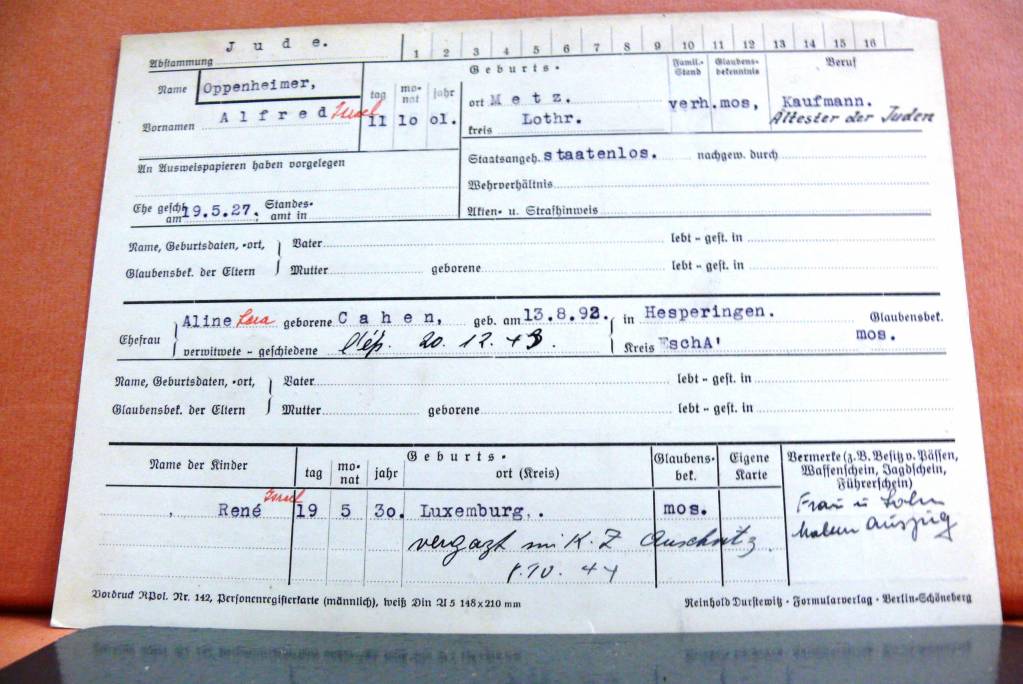 Jude.
Abstammung
1 2 3 4 5 6 7 8 9 10 11 12 13 14 15 16
Name Oppenheimer,
tag monat jahr
Geburts-
Famil.-Stand
Glaubensbekenntnis
Beruf
Vornamen Alfred Israel
11 10 01.
ort Metz.
Lothr.
kreis
verh. mos,
Kaufmann.
Ältester der Juden
An Ausweispapieren haben vorgelegen
Staatsangeh. staatenlos. nachgew. durch
Wehrverhältnis
Ehe geschl. am 19.5.27. Standesamt in
Akten- u. Strafhinweis
Name, Geburtsdaten, -ort, Vater lebt - gest. in
Glaubensbek. der Eltern Mutter geborene lebt - gest. in
Ehefrau
Aline Sara geborene Cahen, geb. am 13.8.92. in Hesperingen. Glaubensbek.
verwitwete - geschiedene 20.12.43. Kreis EschA' mos.
Name, Geburtsdaten, -ort, Vater lebt - gest. in
Glaubensbek. der Eltern Mutter geborene lebt - gest. in
Name der Kinder
Geburts-
tag monat jahr ort (Kreis)
Glaubensbek.
Eigene Karte
Vermerke (z.B. Besitz v. Pässen,
Waffenschein, Jagdschein,
Führerschein)
René Israel 19 5 30. Luxemburg,. mos.
Frau u Sohn
haben Auszug
vergazt im K.Z Auschwitz.
Vordruck RPol. Nr. 142, Personenregisterkarte (männlich), weiß Din A 5 148 x 210 mm
Reinhold Durstewitz · Formularverlag · Berlin-Schöneberg